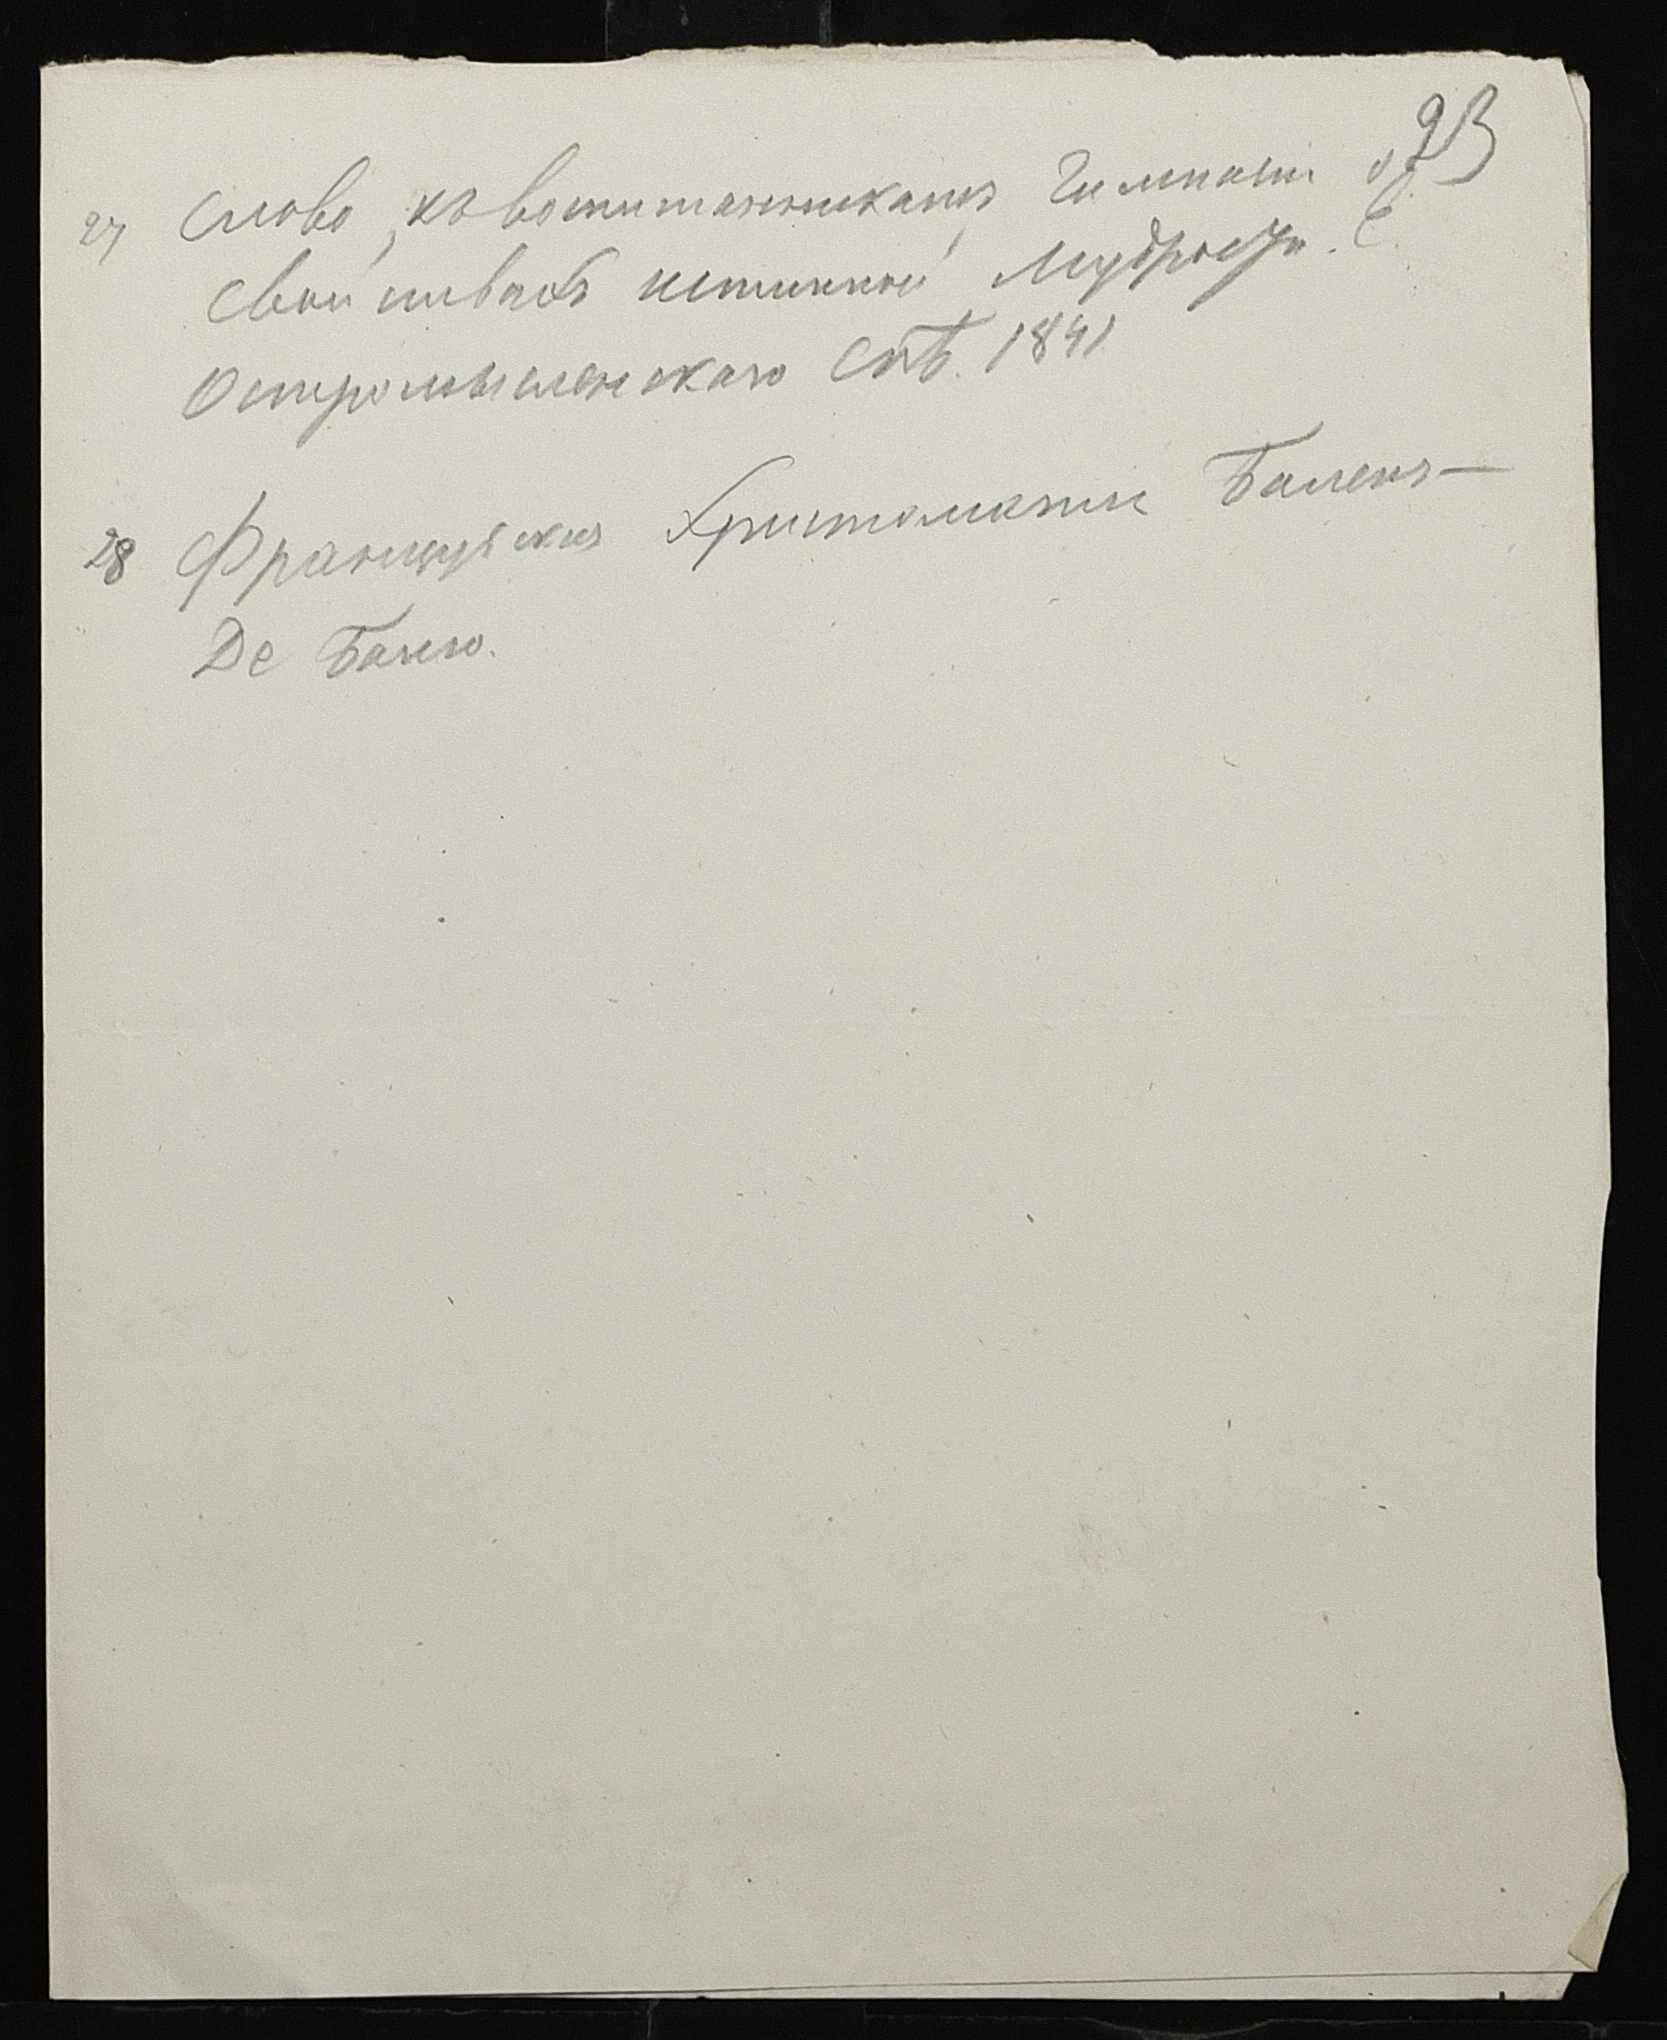 93
27 Слово къ воспитанникамъ Гимназiи о
свойствахъ истинной Мудрости. Е.
Остромысленскаго СпБ. 1841
28 Французская Христоматiя Баленъ-
Де Балю.